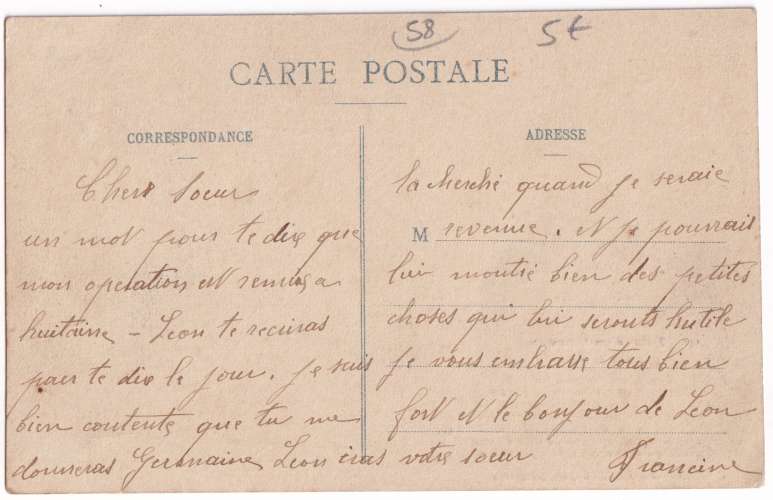 58
5€
CARTE POSTALE
CORRESPONDANCE
Chere Soeur
un mot pour te dire que
mon operation et remise a
huitaine - Leon te reciras
pour te dire le jour. Je suis
bien contente que tu me
donneras Germaine Leon iras
ADRESSE
la cherché quand je seraie
M revenue. et je pourrais
lui montré bien des petites
choses qui lui seronts hutile
je vous embrasse tous bien
fort et le bonjour de Leon
votre soeur Francine